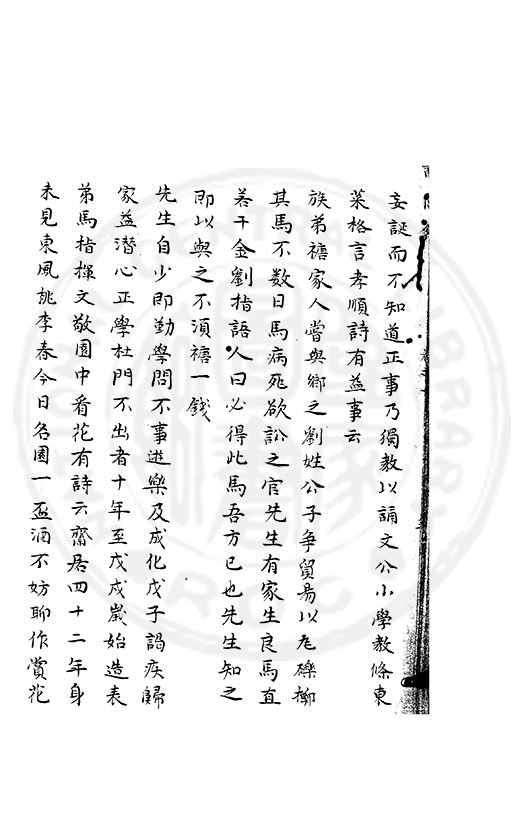 妄誕而不知道正事乃獨教以誦文公小學教條東
萊格言孝順詩有益事云
族弟禧家人嘗與鄉之劉姓公子爭貿易以尨礫擲
其馬不数日馬病死欲訟之官先生有家生良馬直
若干金劉指語人曰必得此馬吾方已也先生知之
即以與之不須禧一錢
先生自少即勤學問不事遊樂及成化戊子謁疾歸
家益潜心正學杜門不出者十年至戊戌嵗始造表
弟馬指揮文敬園中看花有詩云齋居四十二年身
未見東風桃李春今日名園一盃酒不妨聊作賞花